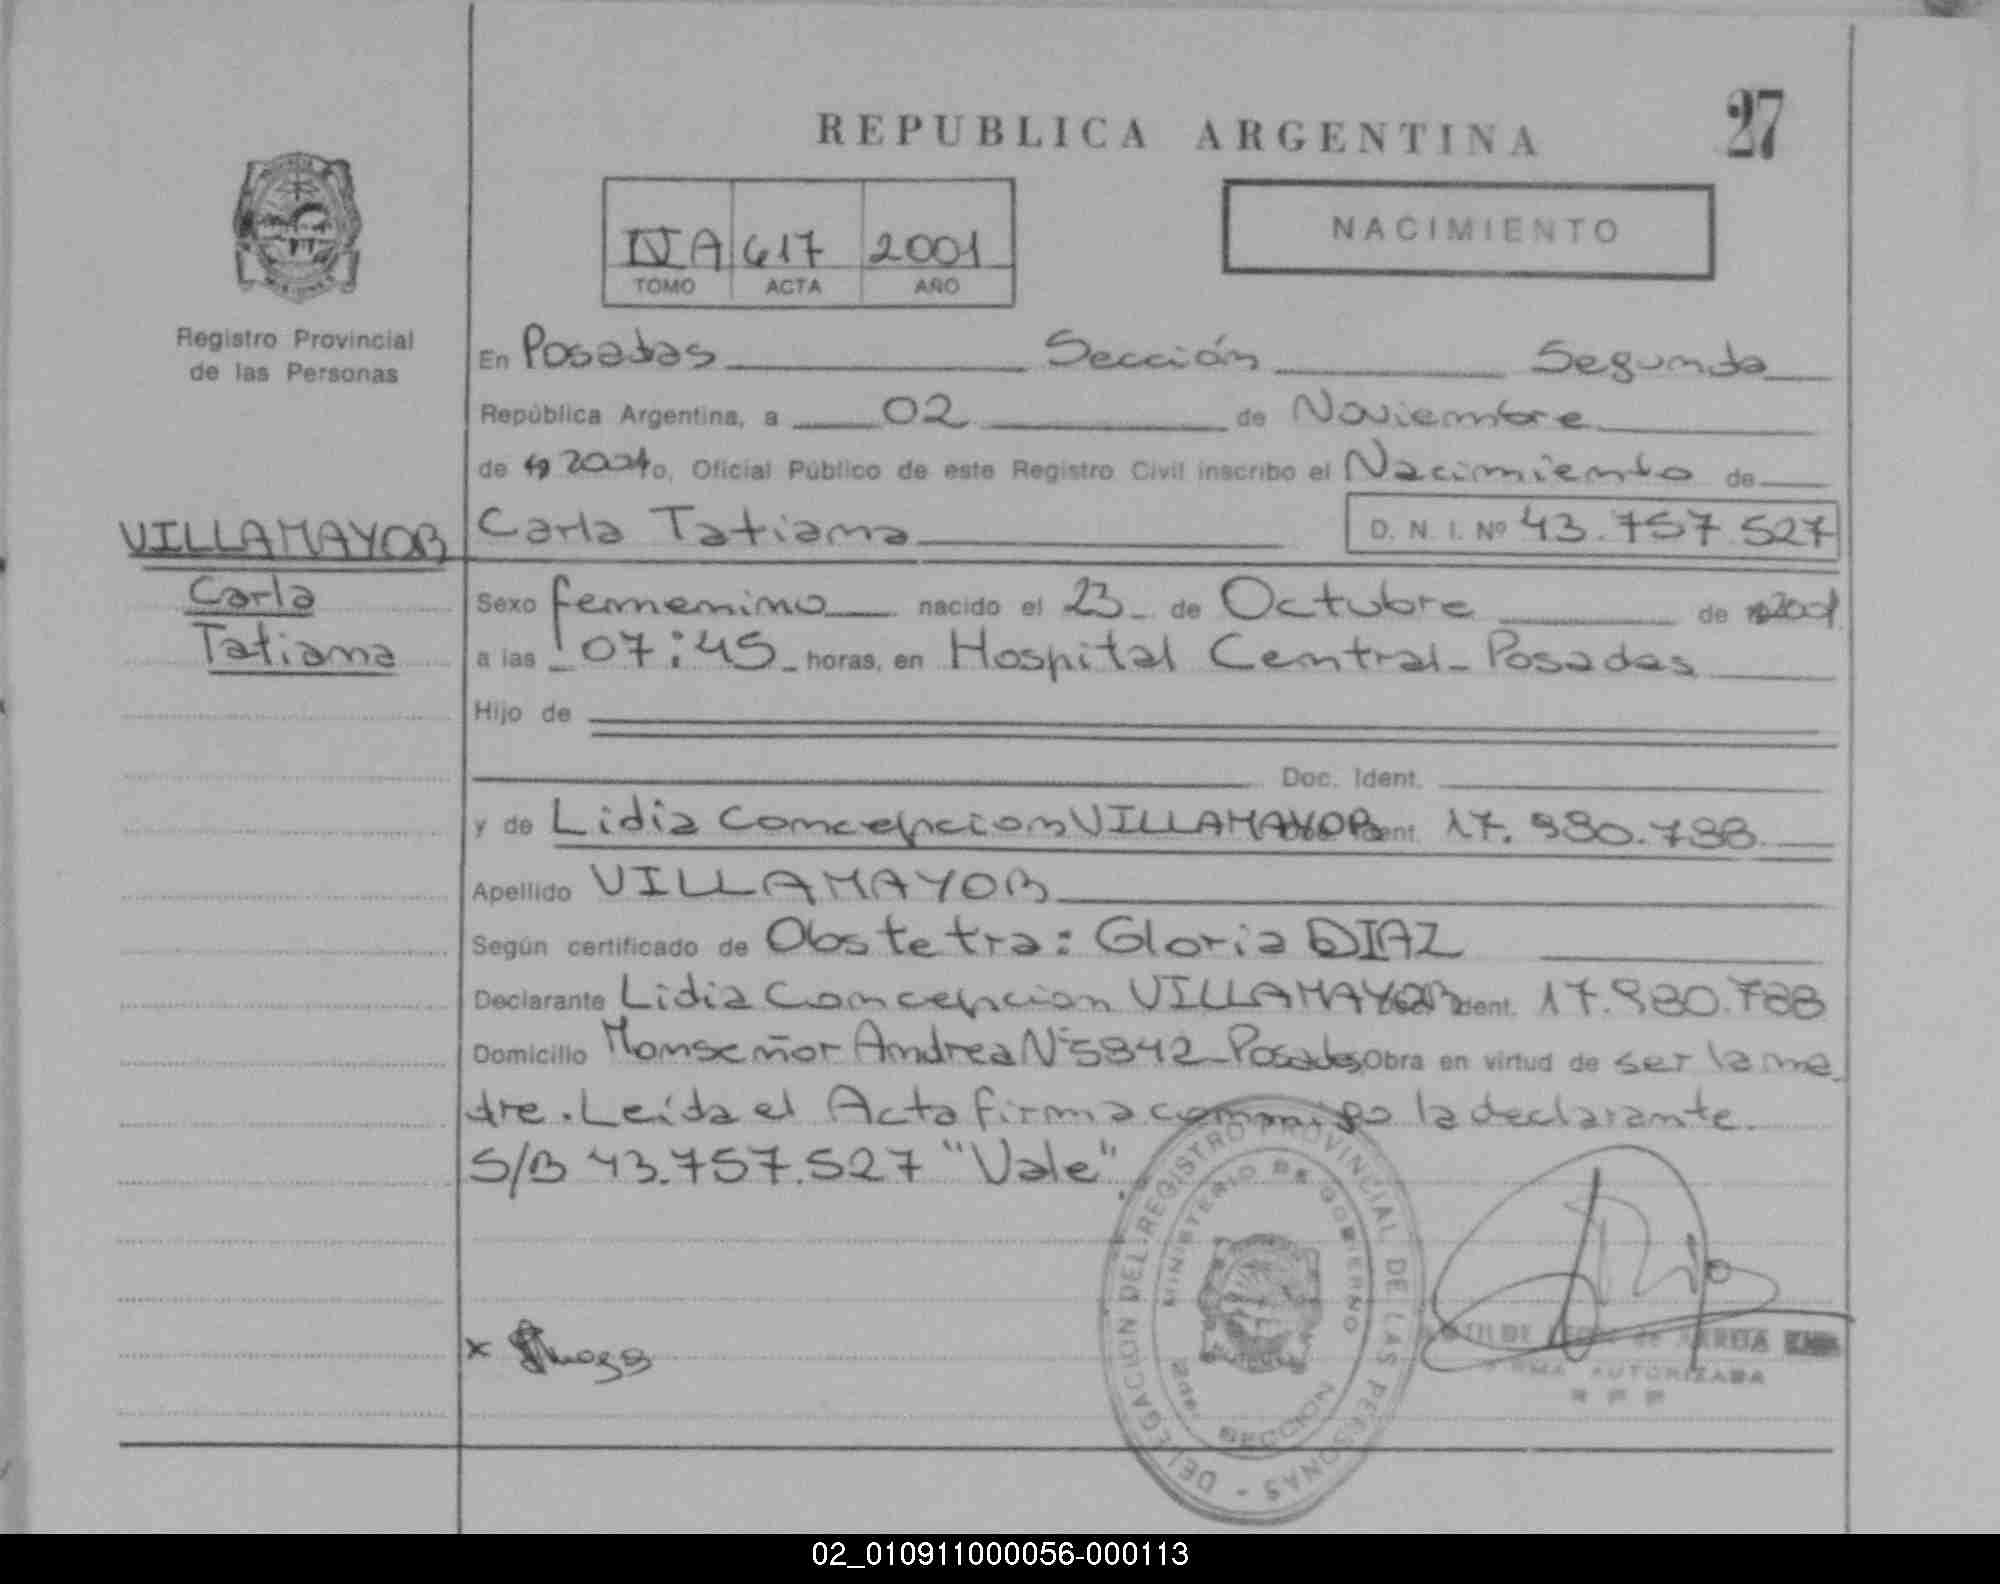 REPUBLICA ARGENTINA
27
NACIMIENTO
NA 617 2001
TOMO ACTA AÑO
Registro Provincial
de las Personas
En Posadas Sección Segunda
República Argentina, a 02 de Noviembre
de 19 2001 yo, Oficial Público de este Registro Civil inscribo el Nacimiento de
VILLAMAYOR
Carla
Tatiana
Carla Tatiana D. N. I. Nº 43.757.527
Sexo femenino nacido el 23 de Octubre de 2001
a las 07:45 horas, en Hospital Central - Posadas
Hijo de
Doc. Ident.
y de Lidia Concepcion VILLAMAYOR Ident. 17.980.788
Apellido VILLAMAYOR
Según certificado de Obstetra: Gloria DIAZ
Declarante Lidia Concepcion VILLAMAYOR Ident. 17.980.788
Domicilio Monseñor Andrea Nº 5842 - Posadas Obra en virtud de ser la ma-
dre. Leída el Acta firma conmigo la declarante.
S/B 43.757.527 "Vale".
x
DELEGACION DEL REGISTRO PROVINCIAL DE LAS PERSONAS -
MINISTERIO DE GOBIERNO
2da. SECCION
FIRMA AUTORIZADA
02_010911000056-000113